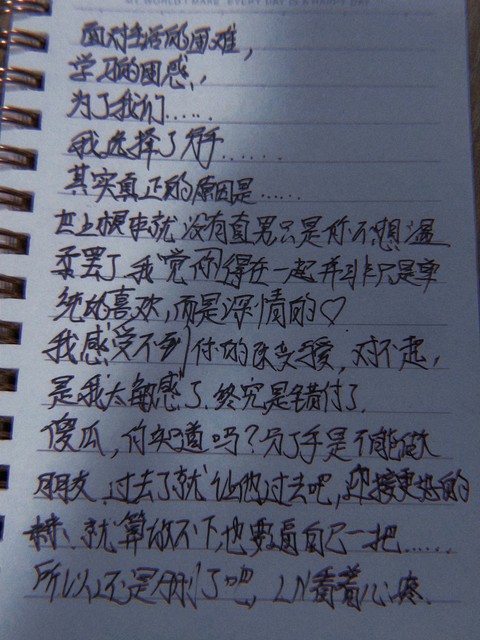 MY WORLD I MAKE EVERY DAY IS A HAPPY DAY
面对生活的困难，
学习的困惑，
为了我们……
我选择了分手……
其实真正的原因是……
世上根本就没有直男只是你不想温
柔罢了，我觉你得在一起并非只是单
纯的喜欢，而是深情的♡
我感受不到你的爱，对不起，
是我太敏感了，终究是错付了。
傻瓜，你知道吗？分了手是不能做
朋友，过去了就让他过去吧，迎接更好的
就算做不下，也要逼自己一把……
所以还是删了吧，看着心疼.